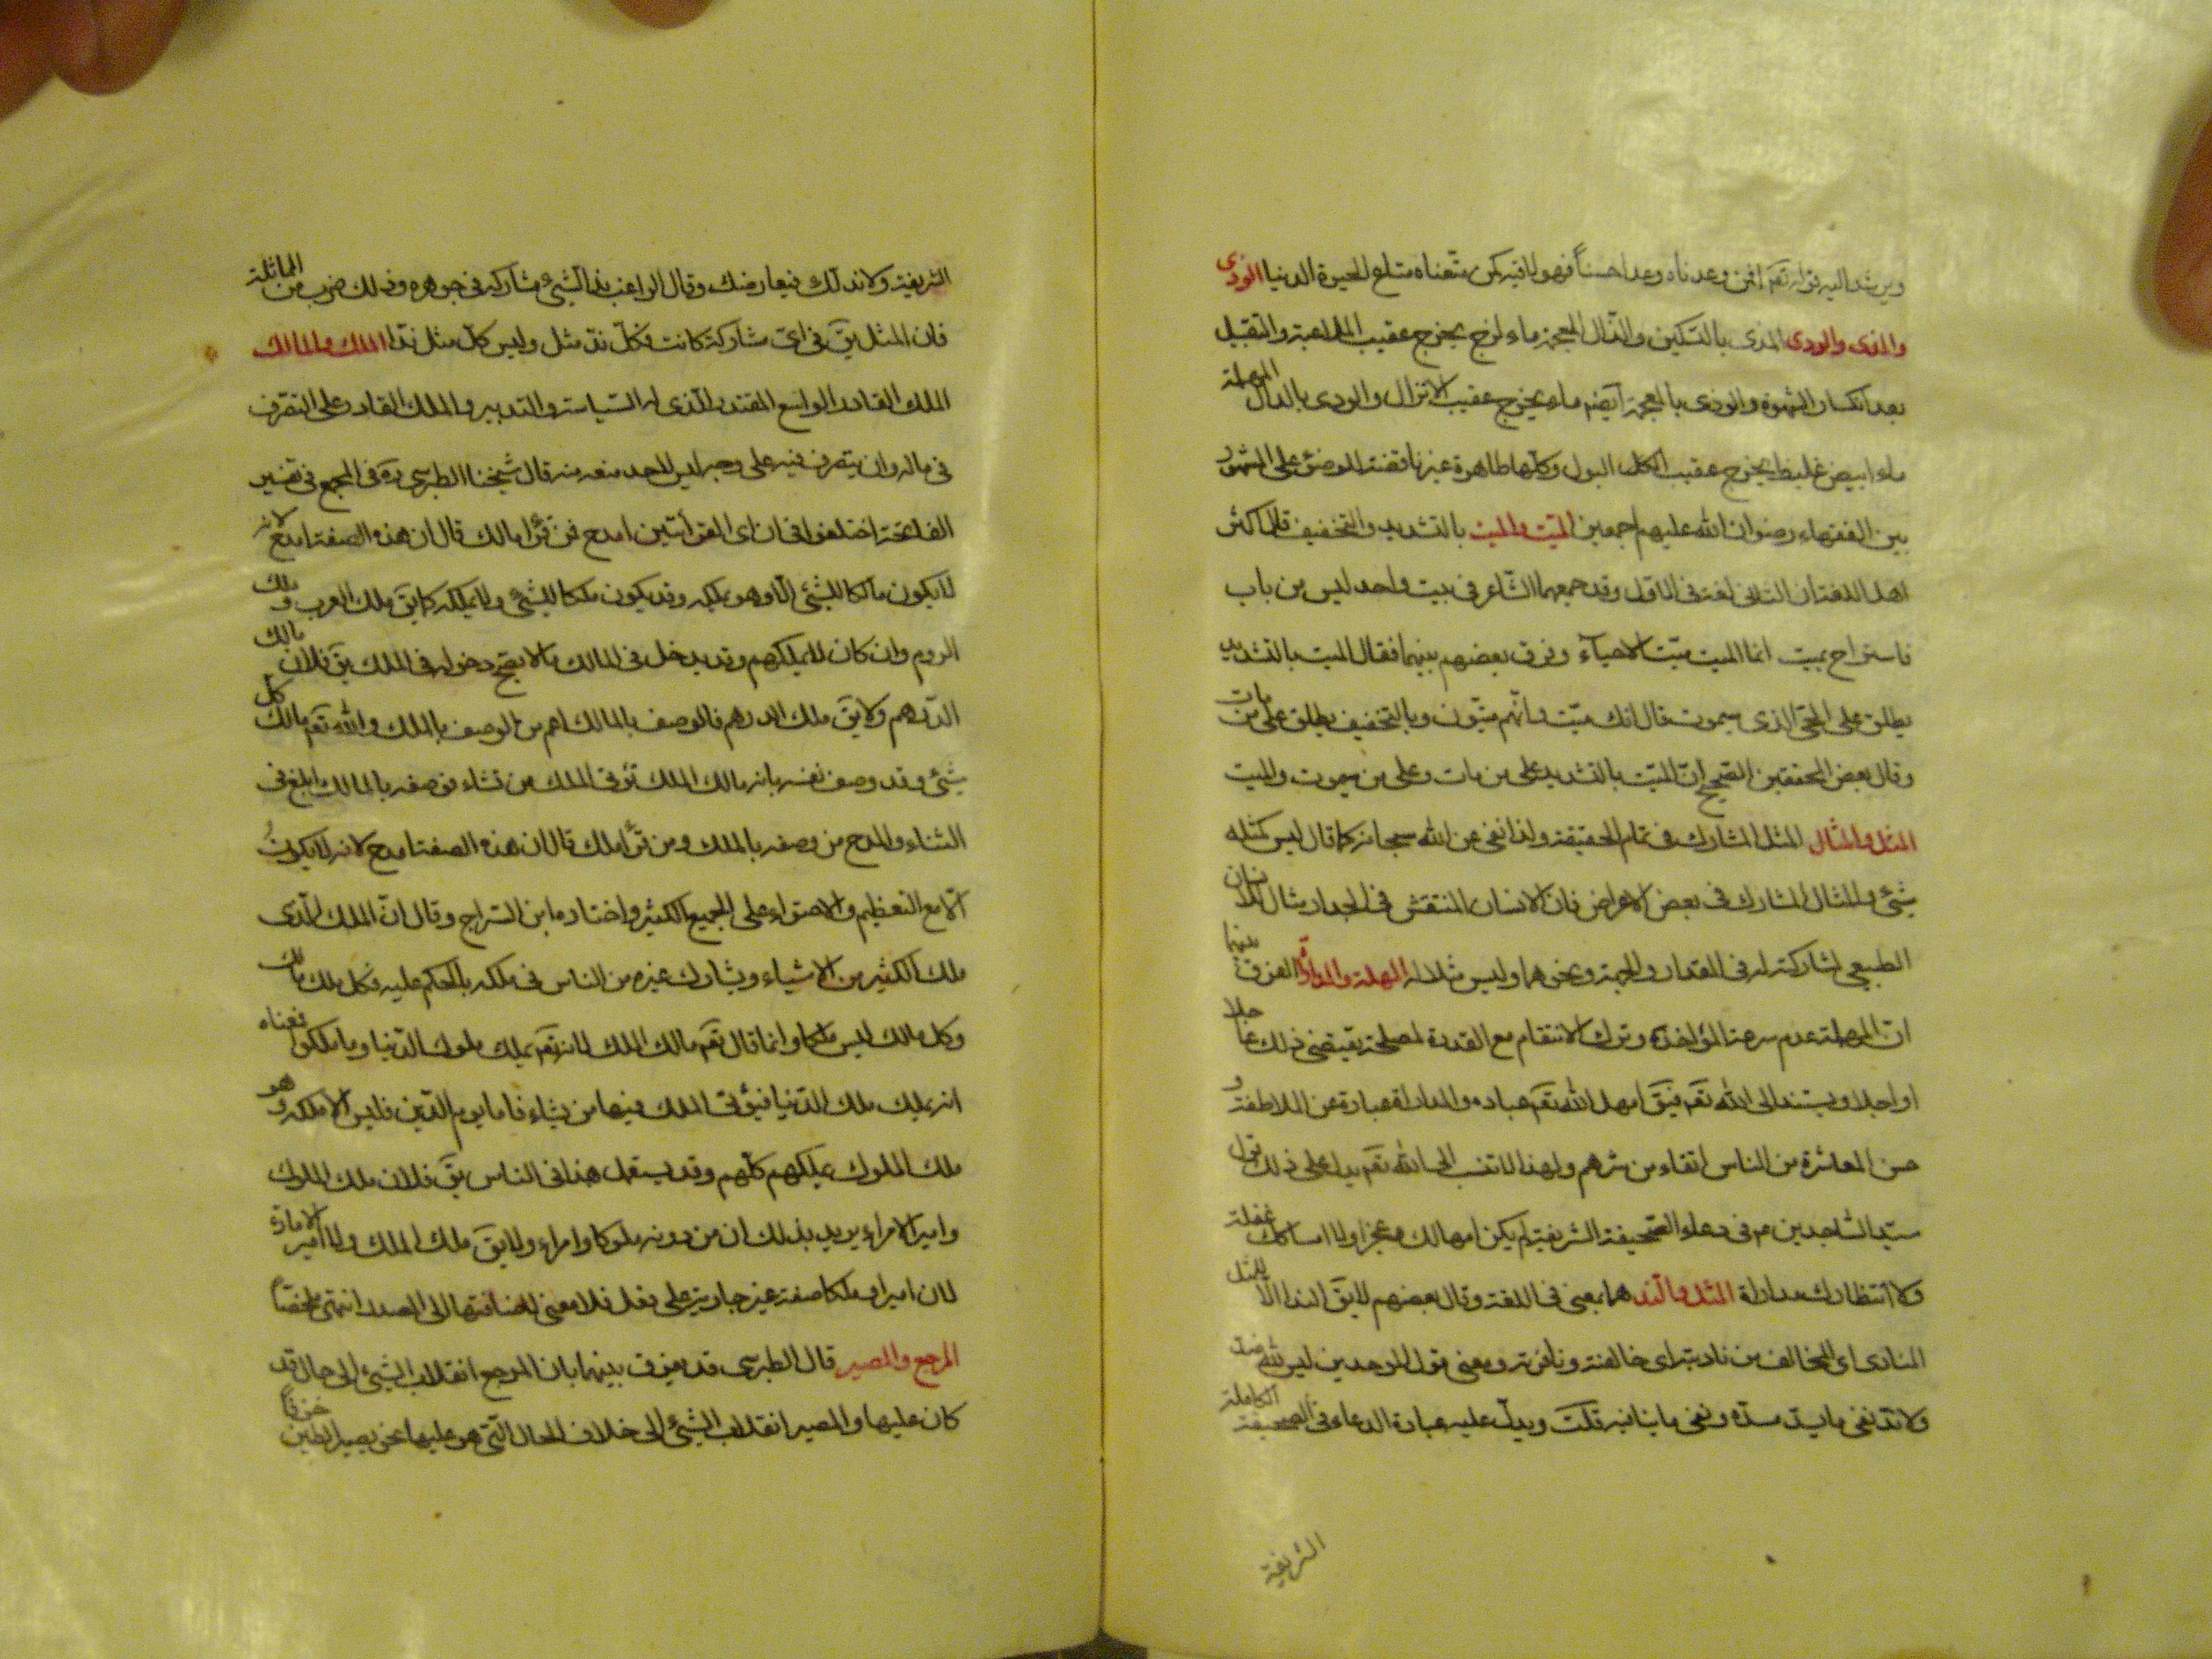 ويرشد اليه قوله تعم افمن وعدناه وعدا حسناً فهو لاقيه كمن متعناه متاع الحيوة الدنيا الوذى
والمذى والودى المذى بالتسكين والذال المعجمة ماء لزج يخرج عقيب الملاعبة والتقبيل
بعد انكسار الشهوة والوذى بالمعجمة ايضم ماء يخرج عقيب الانزال والودى بالدال المهملة
ماء ابيض غليظ يخرج عقيب البول وكلها طاهرة غير ناقضة للوضوء على المشهور
بين الفقهاء رضوان الله عليهم اجمعين الميّت والميت بالتشديد والتخفيف قال اكثر
اهل اللغة ان الثانى لغة فى الاول وقد جمعهما الشاعر فى بيت واحد ليس من باب
فاستراح بميت انما الميت ميّت الاحيآء وفرق بعضهم بينهما فقال الميت بالتشديد
يطلق على الحيّ الذى سيموت قال انك ميّت وانّهم ميّتون وبالتخفيف يطلق على من مات
وقال بعض المحققين الصحيح انّ الميّت بالتشديد على من مات وعلى من سيموت والميت
المثل والمثال المثل المشارك فى تمام الحقيقة ولذا نفى عن الله سبحانه كما قال ليس كمثله
شيئ والمثال المشارك فى بعض الاعراض فان الانسان المنتقش فى الجدار مثال للانسان
الطبيعى لمشاركته له فى المقدار والجهة ونحوهما وليس مثلا له المهلة والمداراة الفرق بينهما
انّ المهلة عدم سرعة المؤاخذة وترك الانتقام مع القدرة لمصلحة يقتضى ذلك عاجلا
او اجلا ويستند الى الله تعم فيقَ امهل الله تعم عباده والمداراة عبارة عن الملاطفة و
حسن المعاشرة من الناس اتقاء من شرهم ولهذا لا تنسب الى الله تعم يدل على ذلك قول
سيّد الساجدين عم فى دعاء الصحيفة الشريفة لم يكن امهالك عجزا ولا امساكك غفلة
ولا انتظارك مداراة المثل والند هما بمعنى فى اللغة وقال بعضهم لا يقَ الند الا للمثل
المنادى اى المخالف من ناديته اى خالفته ونافرته ومعنى قول الموحدين ليس لله ضد
ولا ندّ نفى ما يسدّ مسدّه ونفى ما ينافيه قلت ويدلّ عليه عبارة الدعاء فى الصحيفة الكاملة
الشريفة
الشريفة ولا ند لك فيعارضك وقال الراغب ند الشيء مشاركه فى جوهره وذلك ضرب من المماثلة
فان المثل يقَ فى اىّ مشاركة كانت فكلّ ندّ مثل وليس كلّ مثل ندّا الملك والمالك
الملك القادر الواسع المقتدر الّذى له السّياسة والتدبير والملك القادر على التصرف
فى ماله وان يتصرف فيه على وجه ليس لاحد منعه منه قال شيخنا الطبرسى ره فى المجمع فى تفسير
الفاتحة اختلفوا فى ان اى القرائتين امدح فمن قرأ مالك قال ان هذه الصفة امدح لانه
لا يكون مالكا للشئ الّا وهو يملكه وقد يكون ملكا للشئ ولا يملكه كما يقَ ملك العرب و ملك
الروم وان كان لا يملكهم وقد يدخل فى المالك ما لا يصح دخوله فى الملك يقَ فلان مالك
الدّرهم ولا يقَ ملك الدرهم فالوصف بالمالك اعم من الوصف بالملك والله تعم مالك كل
شيئ وقد وصف نفسه بانه مالك الملك تؤتى الملك من تشاء فوصفه بالمالك ابلغ فى
الثناء والمدح من وصفه بالملك ومن قرأ ملك قال ان هذه الصفة امدح لانه لا يكون
الّا مع التعظيم والاحتواء على الجمع الكثير واختاره ابن السّراج وقال انّ الملك الّذى
ملك الكثير من الاشياء ويشارك غيره من الناس فى ملكه بالحكم عليه فكل ملك مالك
وكل مالك ليس ملكا وانما قال تعم مالك الملك لانه تعم يملك ملوك الدّنيا وما ملكوا فمعناه
انه يملك ملك الدّنيا فيؤتى الملك فيها من يشاء فاما يوم الدّين فليس الا ملكه وهو
ملك الملوك يملكهم كلّهم وقد يستعمل هذا فى الناس يقَ فلان ملك الملوك
وامير الامراء يريد بذلك ان من دونه ملوكا وامراء ولا يقَ ملك الملك ولا امير الامارة
لان اميرا وملكا صفة غير جارية على فعل فلا معنى لاضافتها الى المصدر انتهى ملخصاً
المرجع والمصير قال الطبرسى قد يفرق بينهما بان المرجع انقلاب الشيئ الى حال قد
كان عليها والمصير انقلاب الشيئ الى خلاف الحال الّتى هو عليها نحو يصير الطين خزفاً